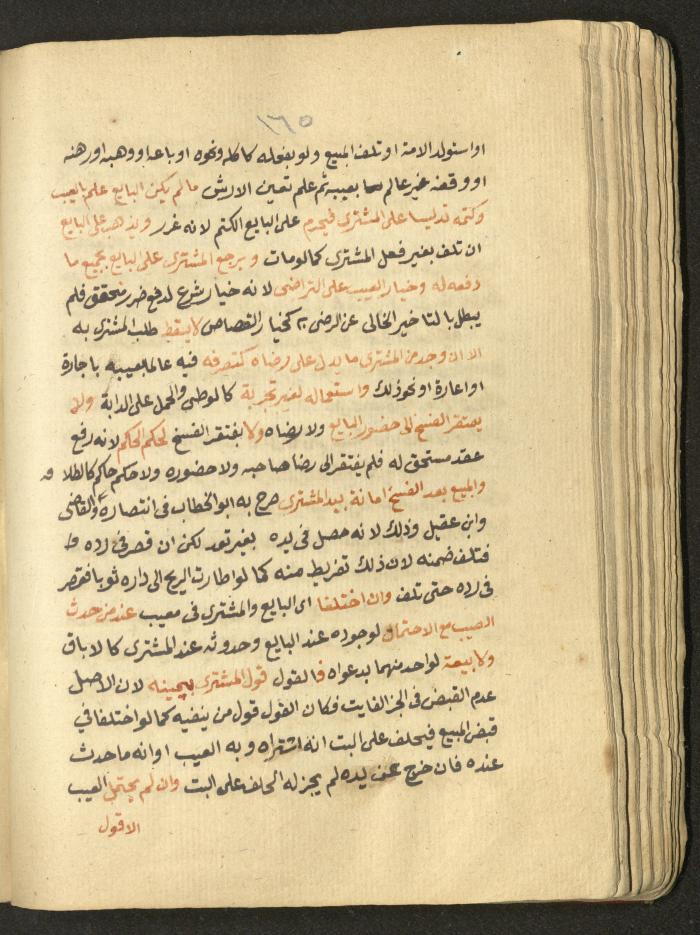 ١٦٥
او استولد الامة او تلف المبيع ولو بفعله كاكله ونحوه او باعه او وهبه او رهنه
او وقفه غير عالم بعيبه ثم علم تعين الارش ما لم يكن البايع علم بالعيب
وكتمه تدليسا على المشتري فيحرم على البايع الكتم لانه غرر ويذهب على البايع
ان تلف بغير فعل المشتري كما لو مات ويرجع المشتري على البايع بجميع ما
دفعه له وخيار العيب على التراضي لانه خيار شرع لدفع ضرر متحقق فلم
يبطل بالتاخير الخالي عن الرضى به كخيار القصاص لا يسقط طلب المشتري به
الا ان وجد من المشتري ما يدل على رضاه كتصرفه فيه عالما بعيبه باجارة
او اعارة او نحو ذلك واستعماله لغير تجربة كالوطي والحمل على الدابة ولا
يفتقر الفسخ الى حضور البايع ولا رضاه ولا يفتقر الفسخ لحكم الحاكم لانه رفع
عقد مستحق له فلم يفتقر الى رضا صاحبه ولا حضوره ولا حكم حاكم كالطلاق
والمبيع بعد الفسخ امانة بيد المشتري صرح به ابو الخطاب في انتصاره والقاضي
وابن عقيل وذلك لانه حصل في يده بغير تعد لكن ان قصر في رده
فتلف ضمنه لان ذلك تفريط منه كما لو اطارت الريح الى داره ثوبا فقصر
في رده حتى تلف وان اختلفا اي البايع والمشتري في معيب عند من حدث
العيب مع الاحتمال لوجوده عند البايع وحدوثه عند المشتري كالاباق
ولا بينة لواحد منهما بدعواه فالقول قول المشتري بيمينه لان الاصل
عدم القبض في الجز الفايت فكان القول قول من ينفيه كما لو اختلفا في
قبض المبيع فيحلف على البت انه اشتراه وبه العيب او انه ما حدث
عنده فان خرج عن يده لم يجز له الحلف على البت وان لم يحتمل العيب
الا قول